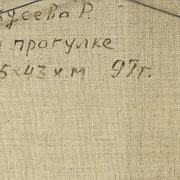 усева Р.
прогулке
5х43 х.м 97г.